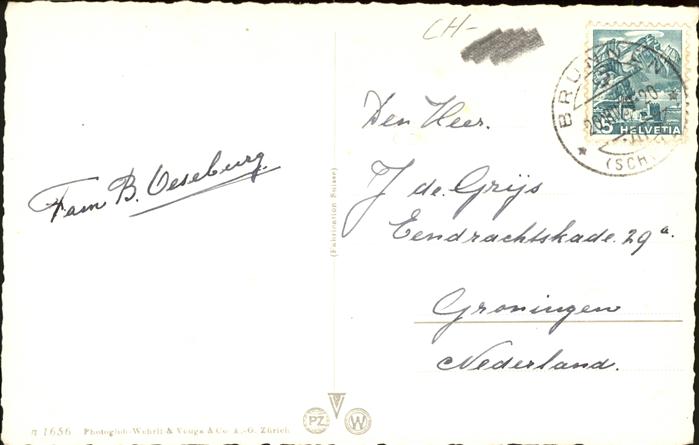 CH-
HELVETIA
5
BRUNNEN
(SCH
Den Heer.
Fam B. Oeseburg
J de Grijs
Eendrachtskade 29a.
Groningen
Nederland.
(Fabrication Suisse)
n 1656 Photoglob-Wehrli & Vouga & Co. A.-G. Zürich
PZ
W